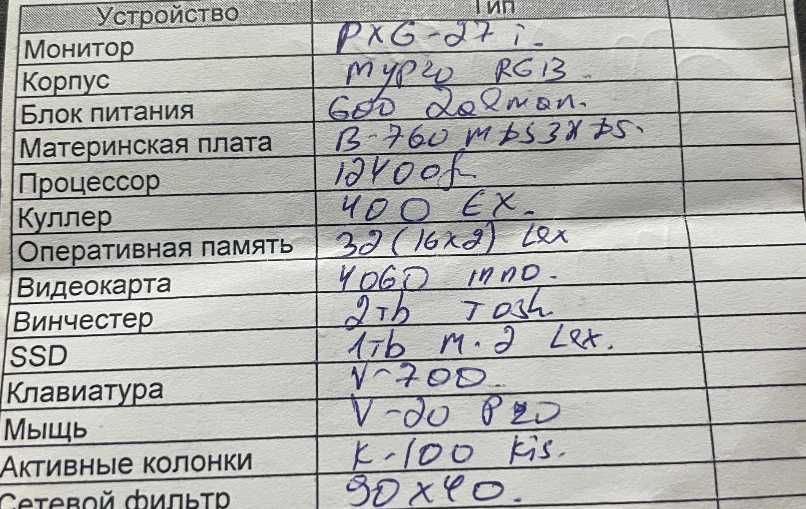 Устройство Тип
Монитор PXG-27 i.
Корпус RGB.
Блок питания 600 Zalman.
Материнская плата B-760 M DS3X D5.
Процессор 12400f.
Куллер 400 EX.
Оперативная память 32 (16x2) Lex
Видеокарта 4060 inno.
Винчестер 2Tb Tosh.
SSD 1Tb M.2 Lex.
Клавиатура V-700.
Мыщь V-20 Pro
Активные колонки K-100 Kis.
Сетевой фильтр 90x40.